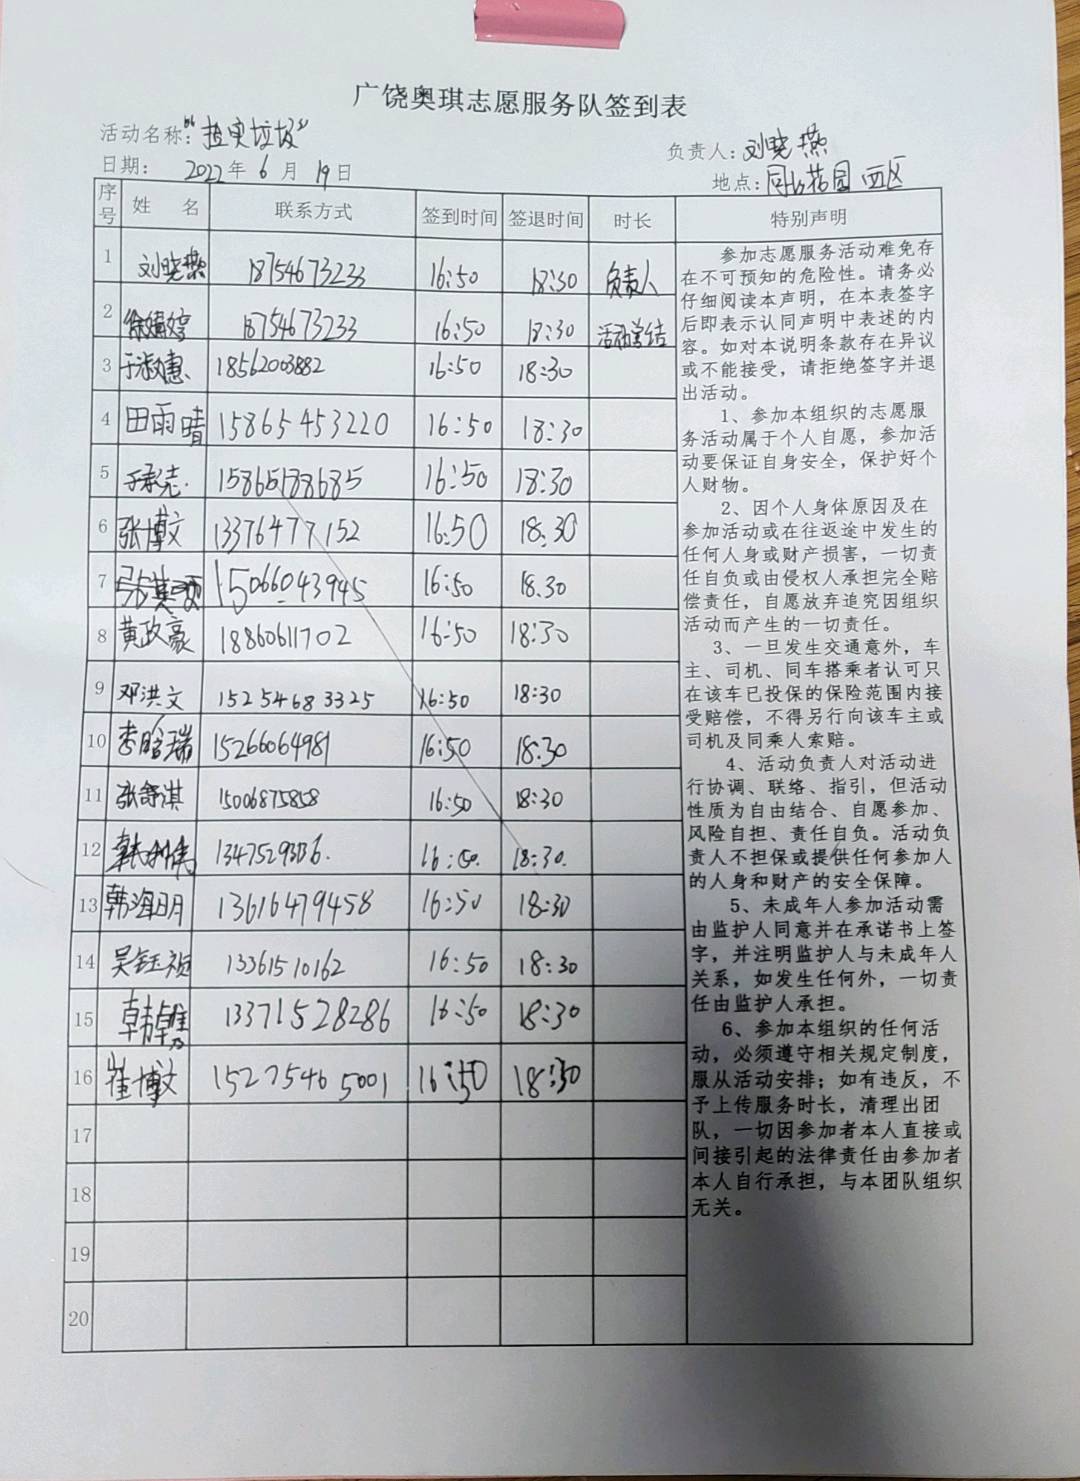 广饶奥琪志愿服务队签到表
活动名称:“捡拾垃圾”
负责人:刘晓燕
日期: 2022年 6 月 19日
地点:花园西区
序号 姓 名 联系方式 签到时间 签退时间 时长 特别声明
1 刘晓燕 18754673233 16:50 18:30 负责人
2 徐婧婷 18754673233 16:50 18:30 活动总结
3 于淑惠 18562003882 16:50 18:30
4 田雨晴 15865453220 16:50 18:30
5 于承志 15865188685 16:50 18:30
6 张博文 13376477152 16:50 18:30
7 15066043945 16:50 18.30
8 黄政豪 18860611702 16:50 18:30
9 邓洪文 15254683325 16:50 18:30
10 李晗瑞 15266064981 16:50 18:30
11 张舒淇 15006875858 16:50 18:30
12 16:50. 18:30.
13 13616479458 16:50 18:30
14 吴钰祯 13361510162 16:50 18:30
15 13371528286 16:50 18:30
16 崔博文 15275465001 16:50 18:30
17
18
19
20
参加志愿服务活动难免存
在不可预知的危险性。请务必
仔细阅读本声明，在本表签字
后即表示认同声明中表述的内
容。如对本说明条款存在异议
或不能接受，请拒绝签字并退
出活动。
1、参加本组织的志愿服
务活动属于个人自愿，参加活
动要保证自身安全，保护好个
人财物。
2、因个人身体原因及在
参加活动或在往返途中发生的
任何人身或财产损害，一切责
任自负或由侵权人承担完全赔
偿责任，自愿放弃追究因组织
活动而产生的一切责任。
3、一旦发生交通意外，车
主、司机、同车搭乘者认可只
在该车已投保的保险范围内接
受赔偿，不得另行向该车主或
司机及同乘人索赔。
4、活动负责人对活动进
行协调、联络、指引，但活动
性质为自由结合、自愿参加、
风险自担、责任自负。活动负
责人不担保或提供任何参加人
的人身和财产的安全保障。
5、未成年人参加活动需
由监护人同意并在承诺书上签
字，并注明监护人与未成年人
关系，如发生任何外，一切责
任由监护人承担。
6、参加本组织的任何活
动，必须遵守相关规定制度，
服从活动安排；如有违反，不
予上传服务时长，清理出团
队，一切因参加者本人直接或
间接引起的法律责任由参加者
本人自行承担，与本团队组织
无关。